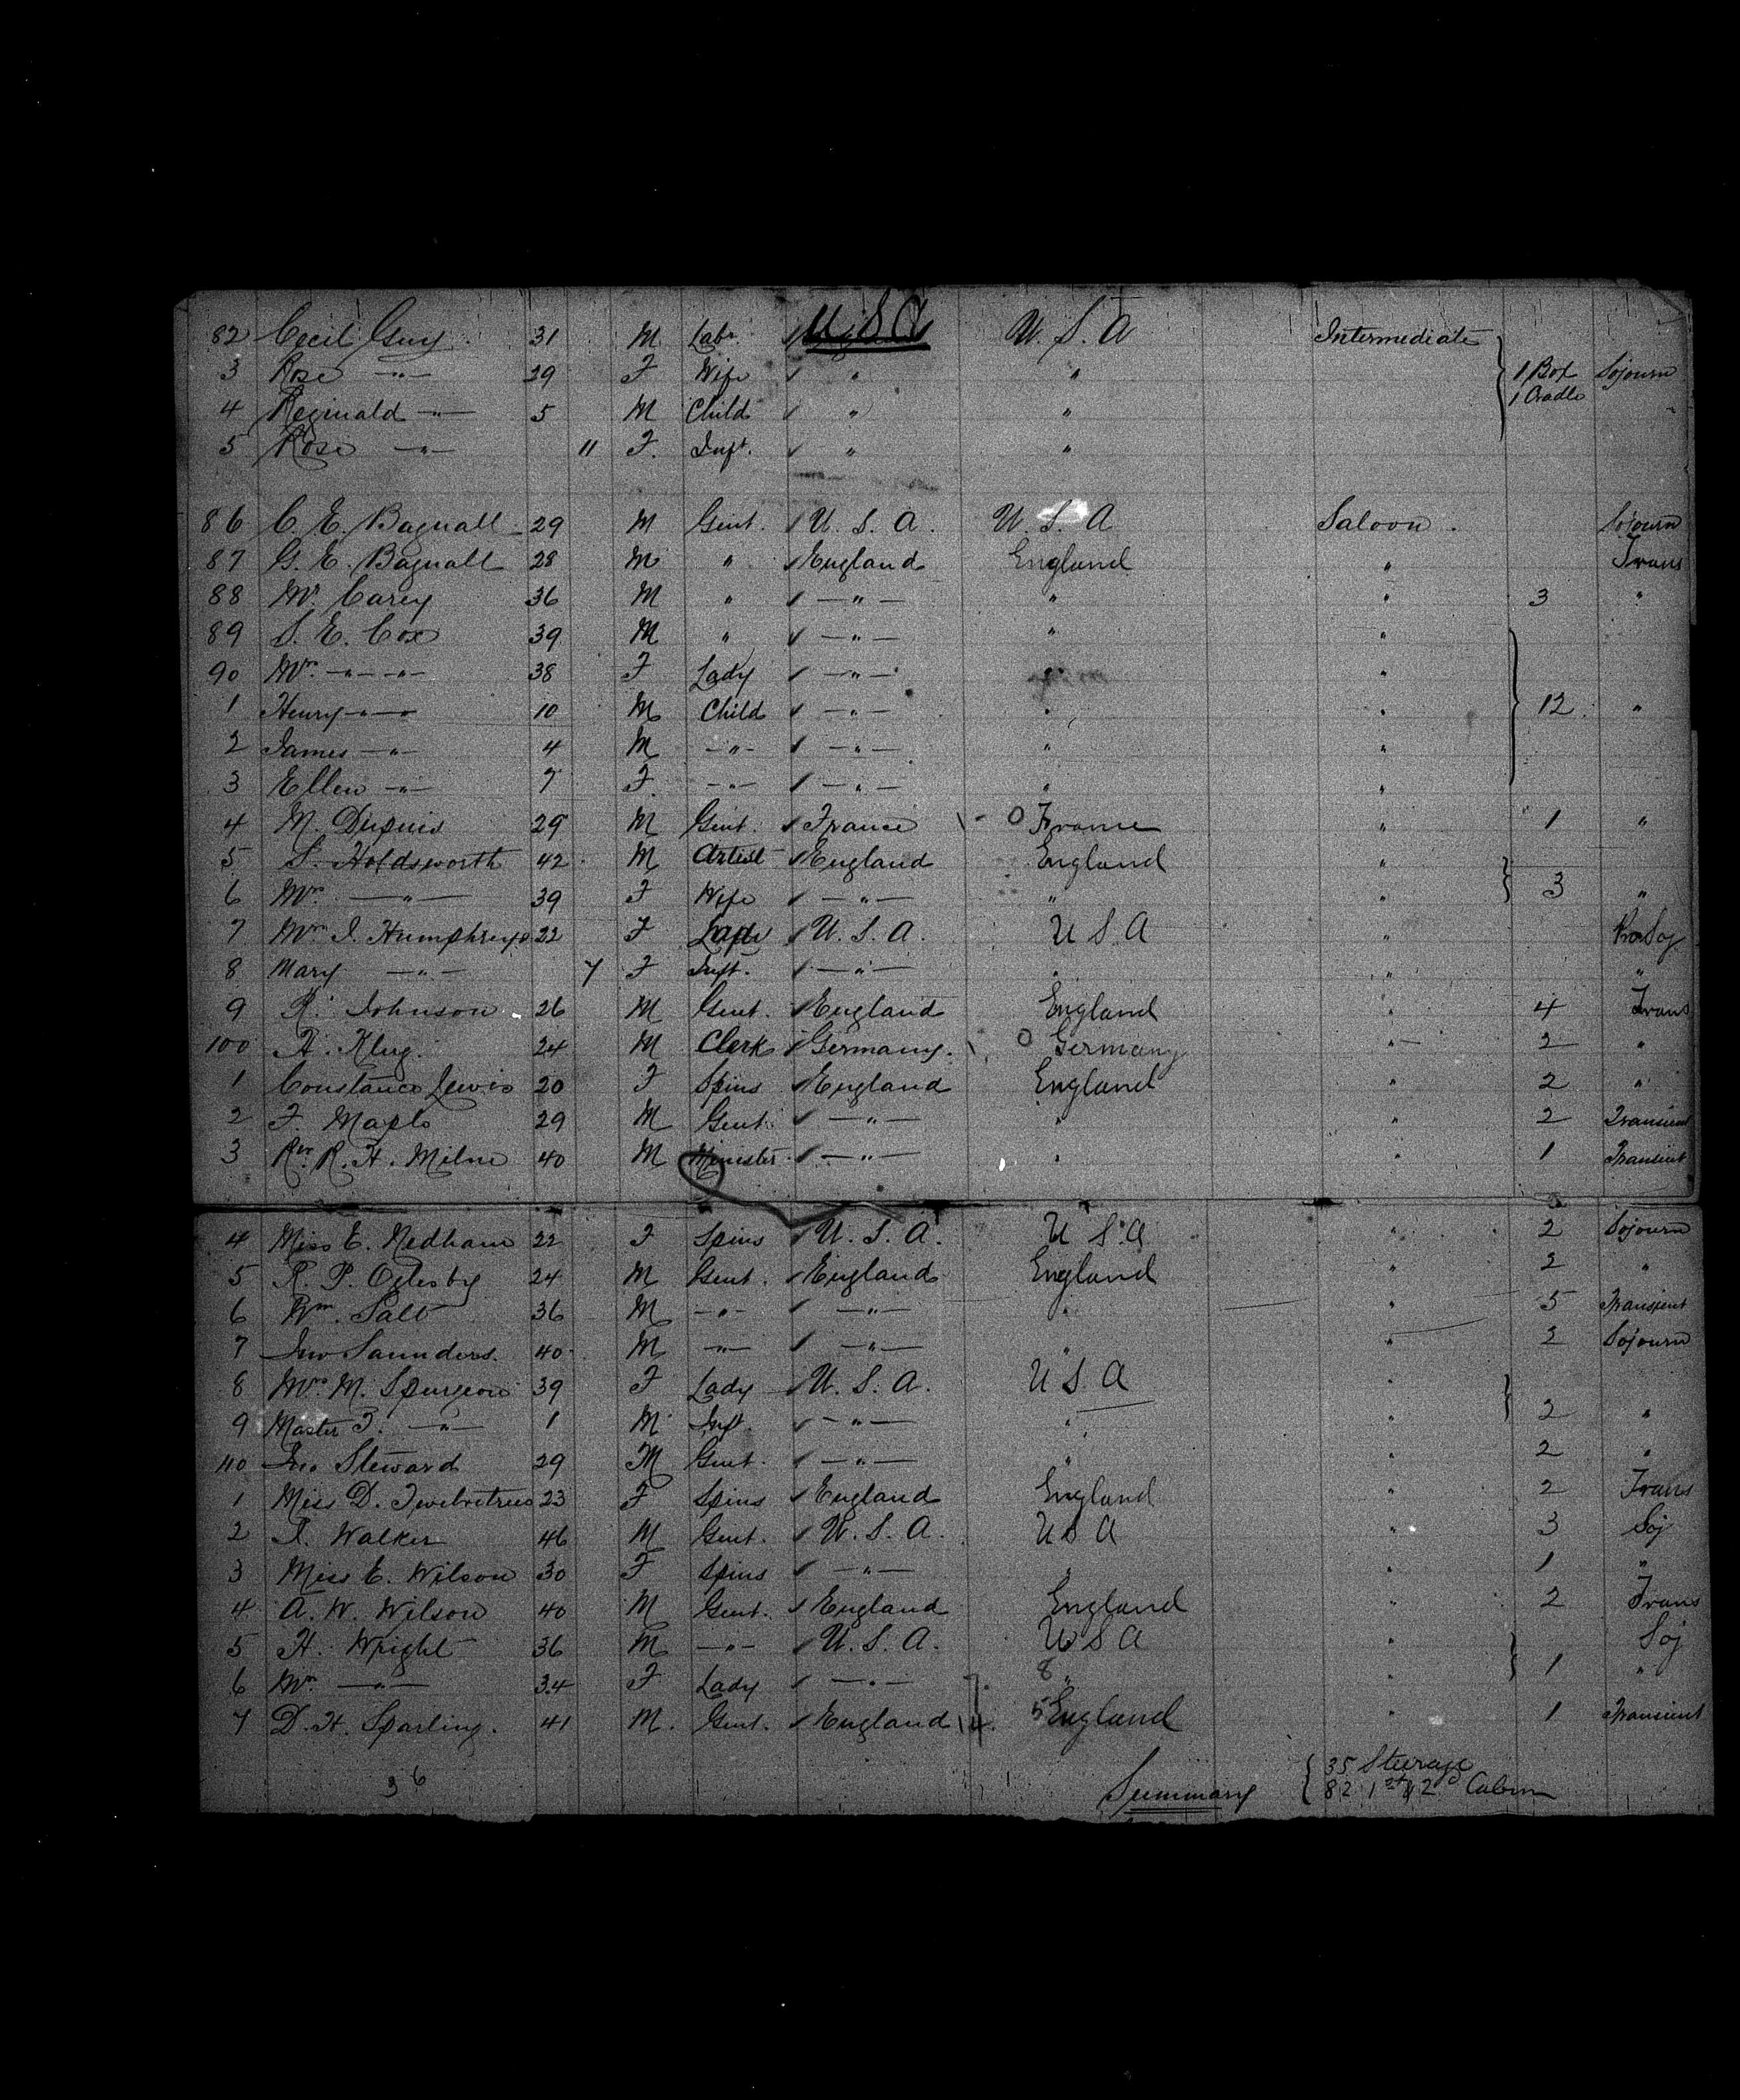 82 Cecil Guy 31 M Labr. U.S.A U.S.A Intermediate
3 Rose —"— 29 F Wife " " 1 Box Sojourn
4 Reginald —"— 5 M Child " " 1 Cradle
5 Rose —"— 11 F. Inft. " "
86 C. E. Bagnall 29 M Gent. U.S.A. U.S.A Saloon. Sojourn
87 G. E. Bagnall 28 M " England England " Trans
88 Carey 36 M " —"— " " 3 "
89 S. E. Cox 39 M " —"— " "
90 Mrs. —"— —"— 38 F Lady —"— " "
1 Henry —"— 10 M Child —"— " " 12 "
2 James —"— 4 M —"— —"— " "
3 Ellen —"— 7 F. —"— —"— " "
4 M. Dupuis 29 M Gent. France O France " 1 "
5 S. Holdsworth 42 M Artist England England "
6 Mrs. —"— 39 F Wife —"— " " 3 "
7 Mrs. I. Humphreys 22 F Lady U.S.A U S A " Soj
8 Mary —"— 7 F Inft. —"— " " "
9 R. Johnson 26 M Gent. England England " 4 Trans
100 A. Klug. 24 M Clerk Germany. O Germany " 2 "
1 Constance Lewis 20 F Spins England England " 2 "
2 F. Maplo 29 M Gent. —"— " " 2 Transient
3 Rev. R. H. Milne 40 M Minister. —"— " " 1 Transient
4 Miss E. Nedham 22 F Spins U.S.A. U S.A " 2 Sojourn
5 R. P. Oglesby 24 M Gent. England England " 2 "
6 Wm. Salt 36 M —"— —"— " " 5 Transient
7 Jno Saunders. 40 M —"— —"— " " 2 Sojourn
8 Mrs M. Spurgeon 39 F Lady U.S.A. U S. A "
9 Master —"— 1 M Inft. —"— " " 2 "
110 Jno Steward 29 M Gent. —"— " " 2 "
1 Miss D. Twelvetrees 23 F Spins England England " 2 Trans
2 Walker 46 M Gent. U.S.A. U S A " 3 Soj
3 Miss E. Wilson 30 F Spins —"— " " 1 "
4 A. W. Wilson 40 M Gent. England England " 2 Trans
5 H. Wright 36 M —"— U.S.A. U S A " Soj
6 Mrs. —"— 34 F Lady —"— 8 " " 1 "
7 D. H. Sparling. 41 M. Gent. England 4. 5 England " 1 Transient
36
Summary { 35 Steerage
82 1st & 2d Cabin